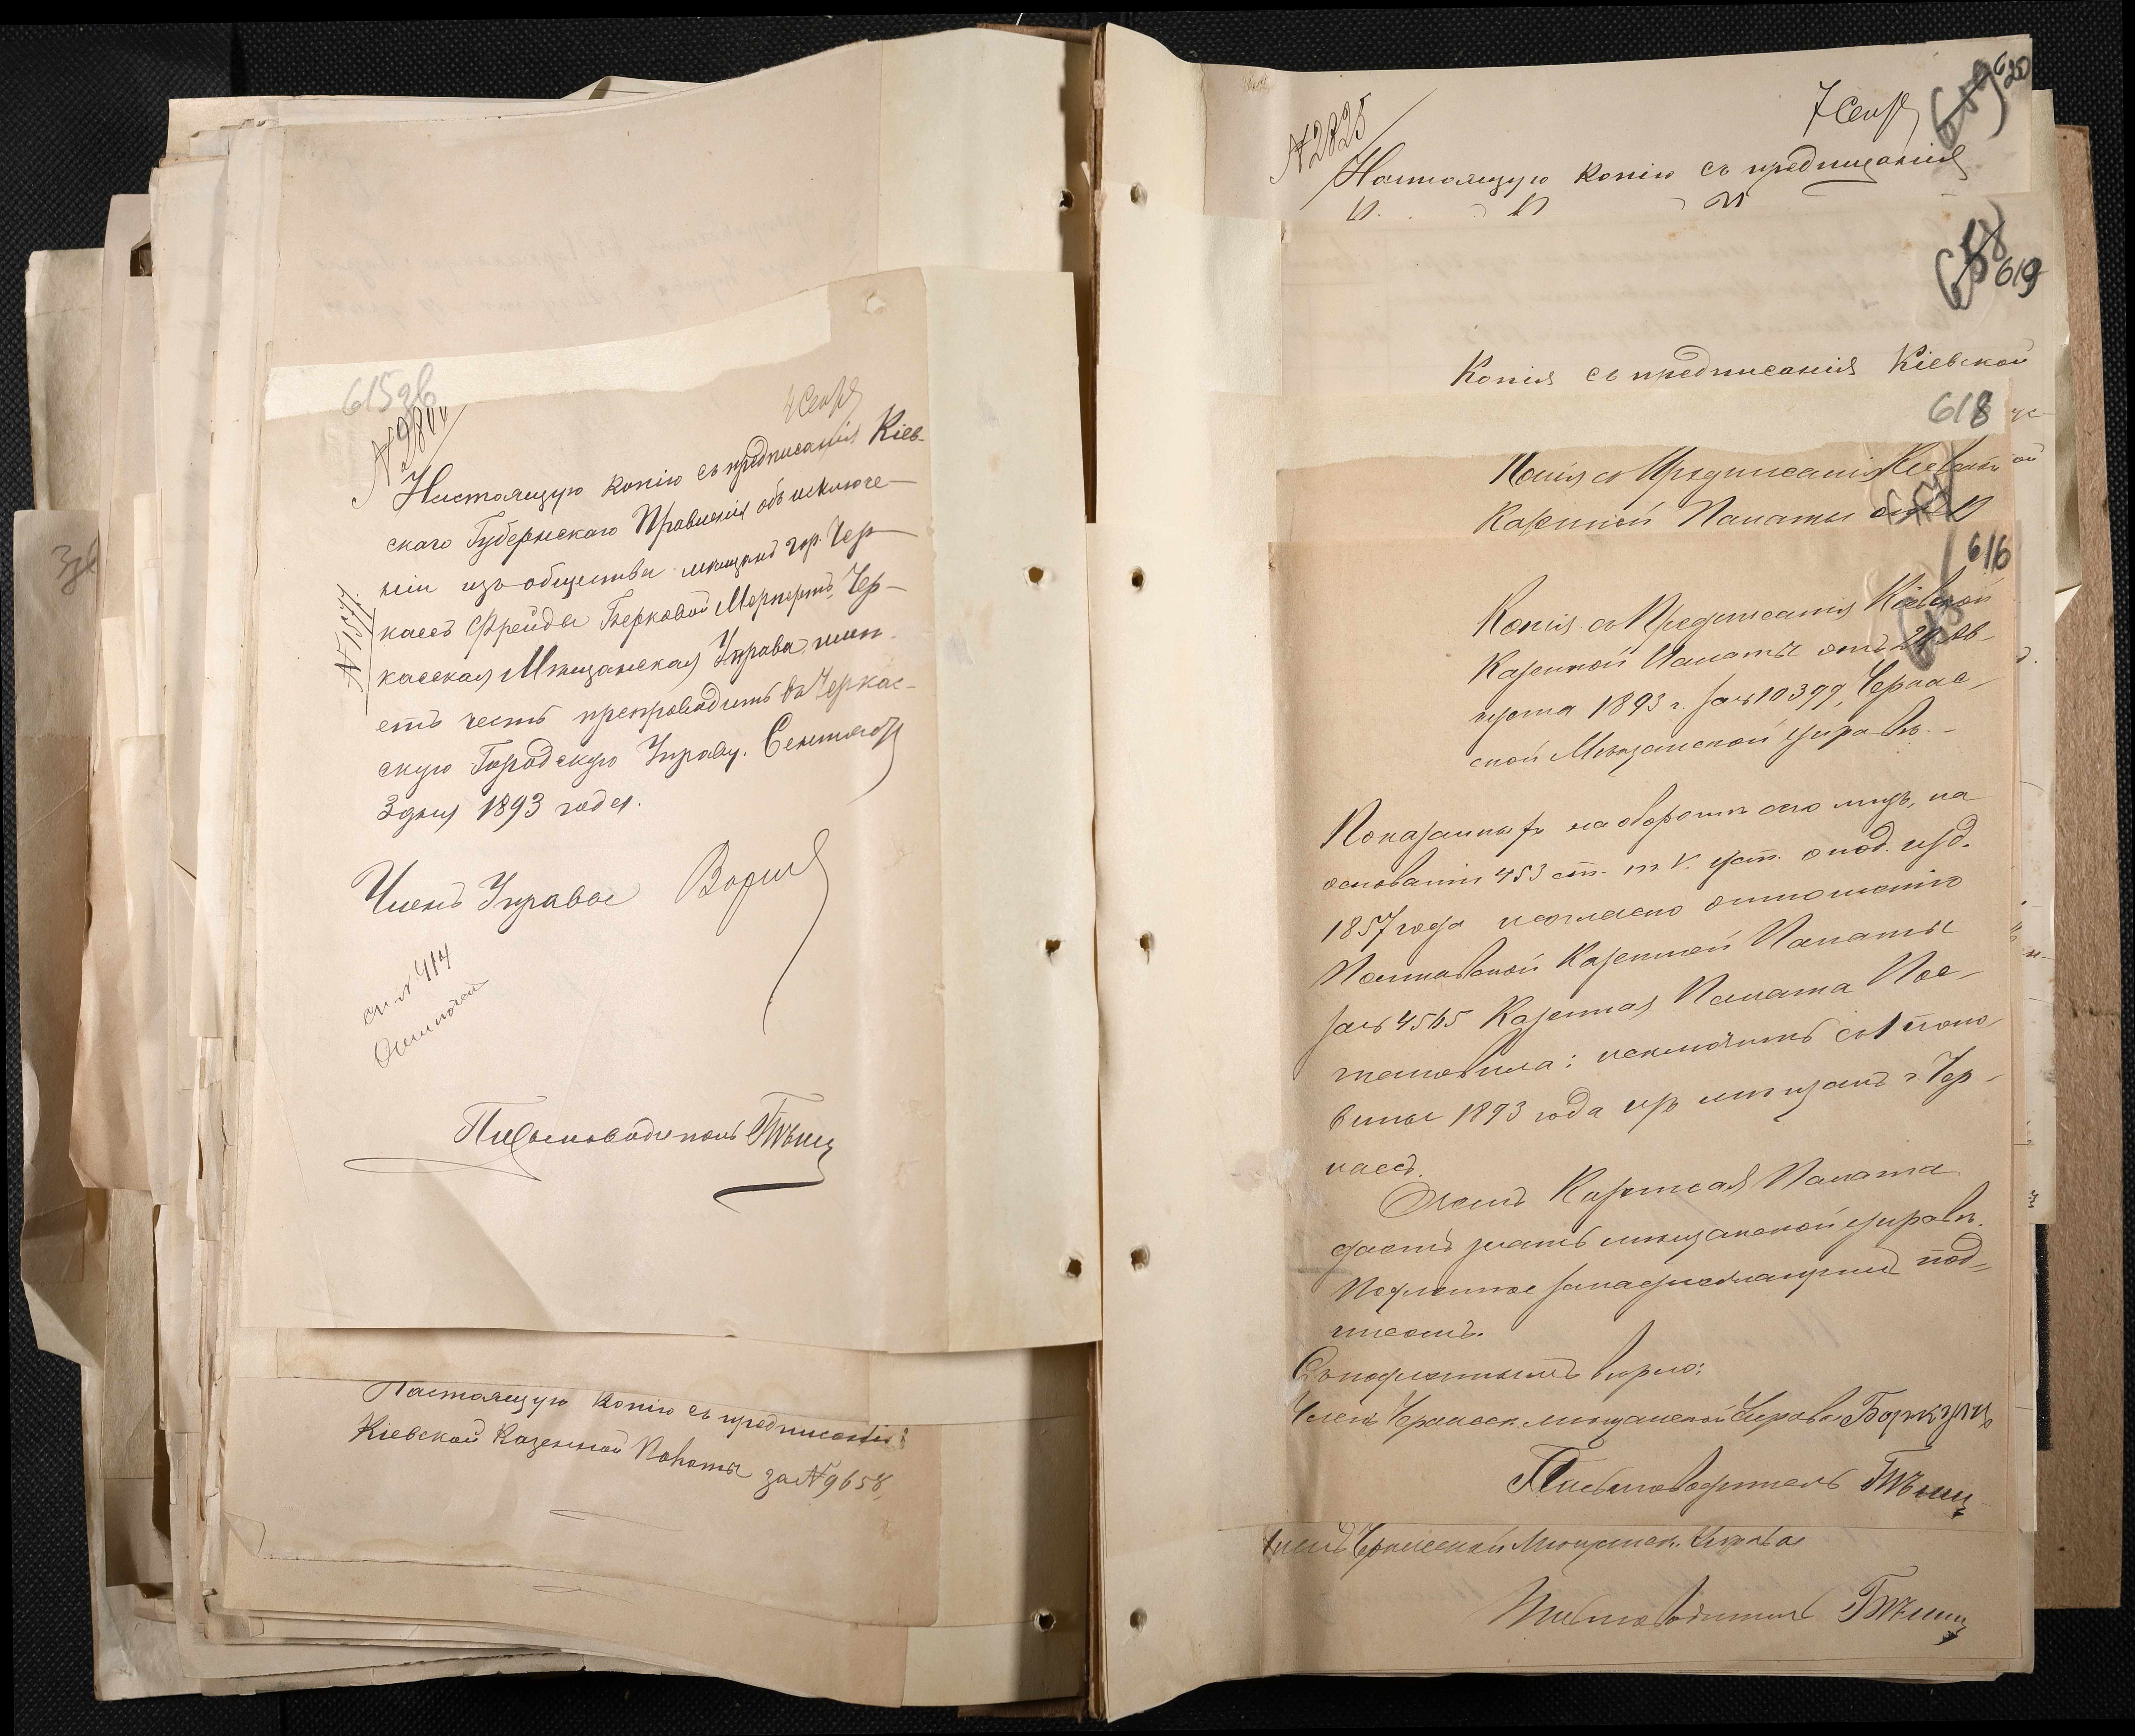 615зв
4 Сент
Настоящую копію съ предписанія Кіев-
скаго Губернскаго Правленія объ исключе-
ніи изъ общества мещанъ гор. Чер-
касъ Фрейды Берковой
Чер-
касская Мѣщанская Управа имѣ-
етъ честь препроводить въ Черкас-
скую Городскую Управу. Сентября
3 дня 1893 года.
№ 1577.
Членъ Управы
оп. № 414
Письмоводитель
Настоящую копію съ предписанія
Кіевской Казенной Палаты за № 9658,
3зв
620
№ 2825
7 Сент
Настоящую копію съ предписанія
658
619
Копія съ предписанія Кіевской
618
Копія съ Предписанія Кіевской
Казенной Палаты отъ
616
Копія съ Предписанія Кіевской
Казенной Палаты отъ 24 Ав-
густа 1893 г. за № 10399, Черкас-
ской Мѣщанской управѣ.
Показанныхъ на оборотѣ сего лицъ, на
основаніи 453 ст. т. V. уст. о под. изд.
1857 года и согласно отношенію
Полтавской Казенной Палаты
за № 4565 Казенная Палата Пос-
тановила: исключить съ 1 поло-
вины 1893 года изъ мещанъ г. Чер-
касъ.
О чемъ Казенная Палата
даетъ знать мещанской управѣ.
Подлинное за надлежащимъ под-
писомъ.
Съ подлиннымъ вѣрно:
Членъ Черкасск. мещанской Управы
Письмоводитель
Членъ Черкасской Мещанск. Управы
Письмоводитель